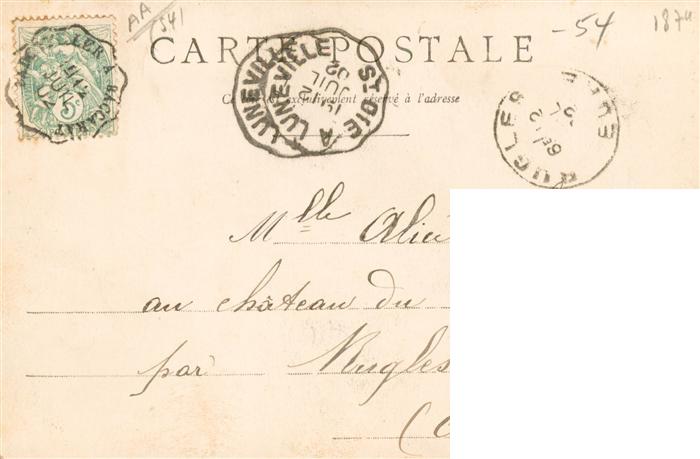 AA
1541
-54
187
CARTE POSTALE
Ce côté est exclusivement réservé à l'adresse
LUNEVILLE
ST DIE A LUNEVILLE
JUIL
02
RUGLES
EURE
5c
Mlle Alice
au château du
par Rugles
(